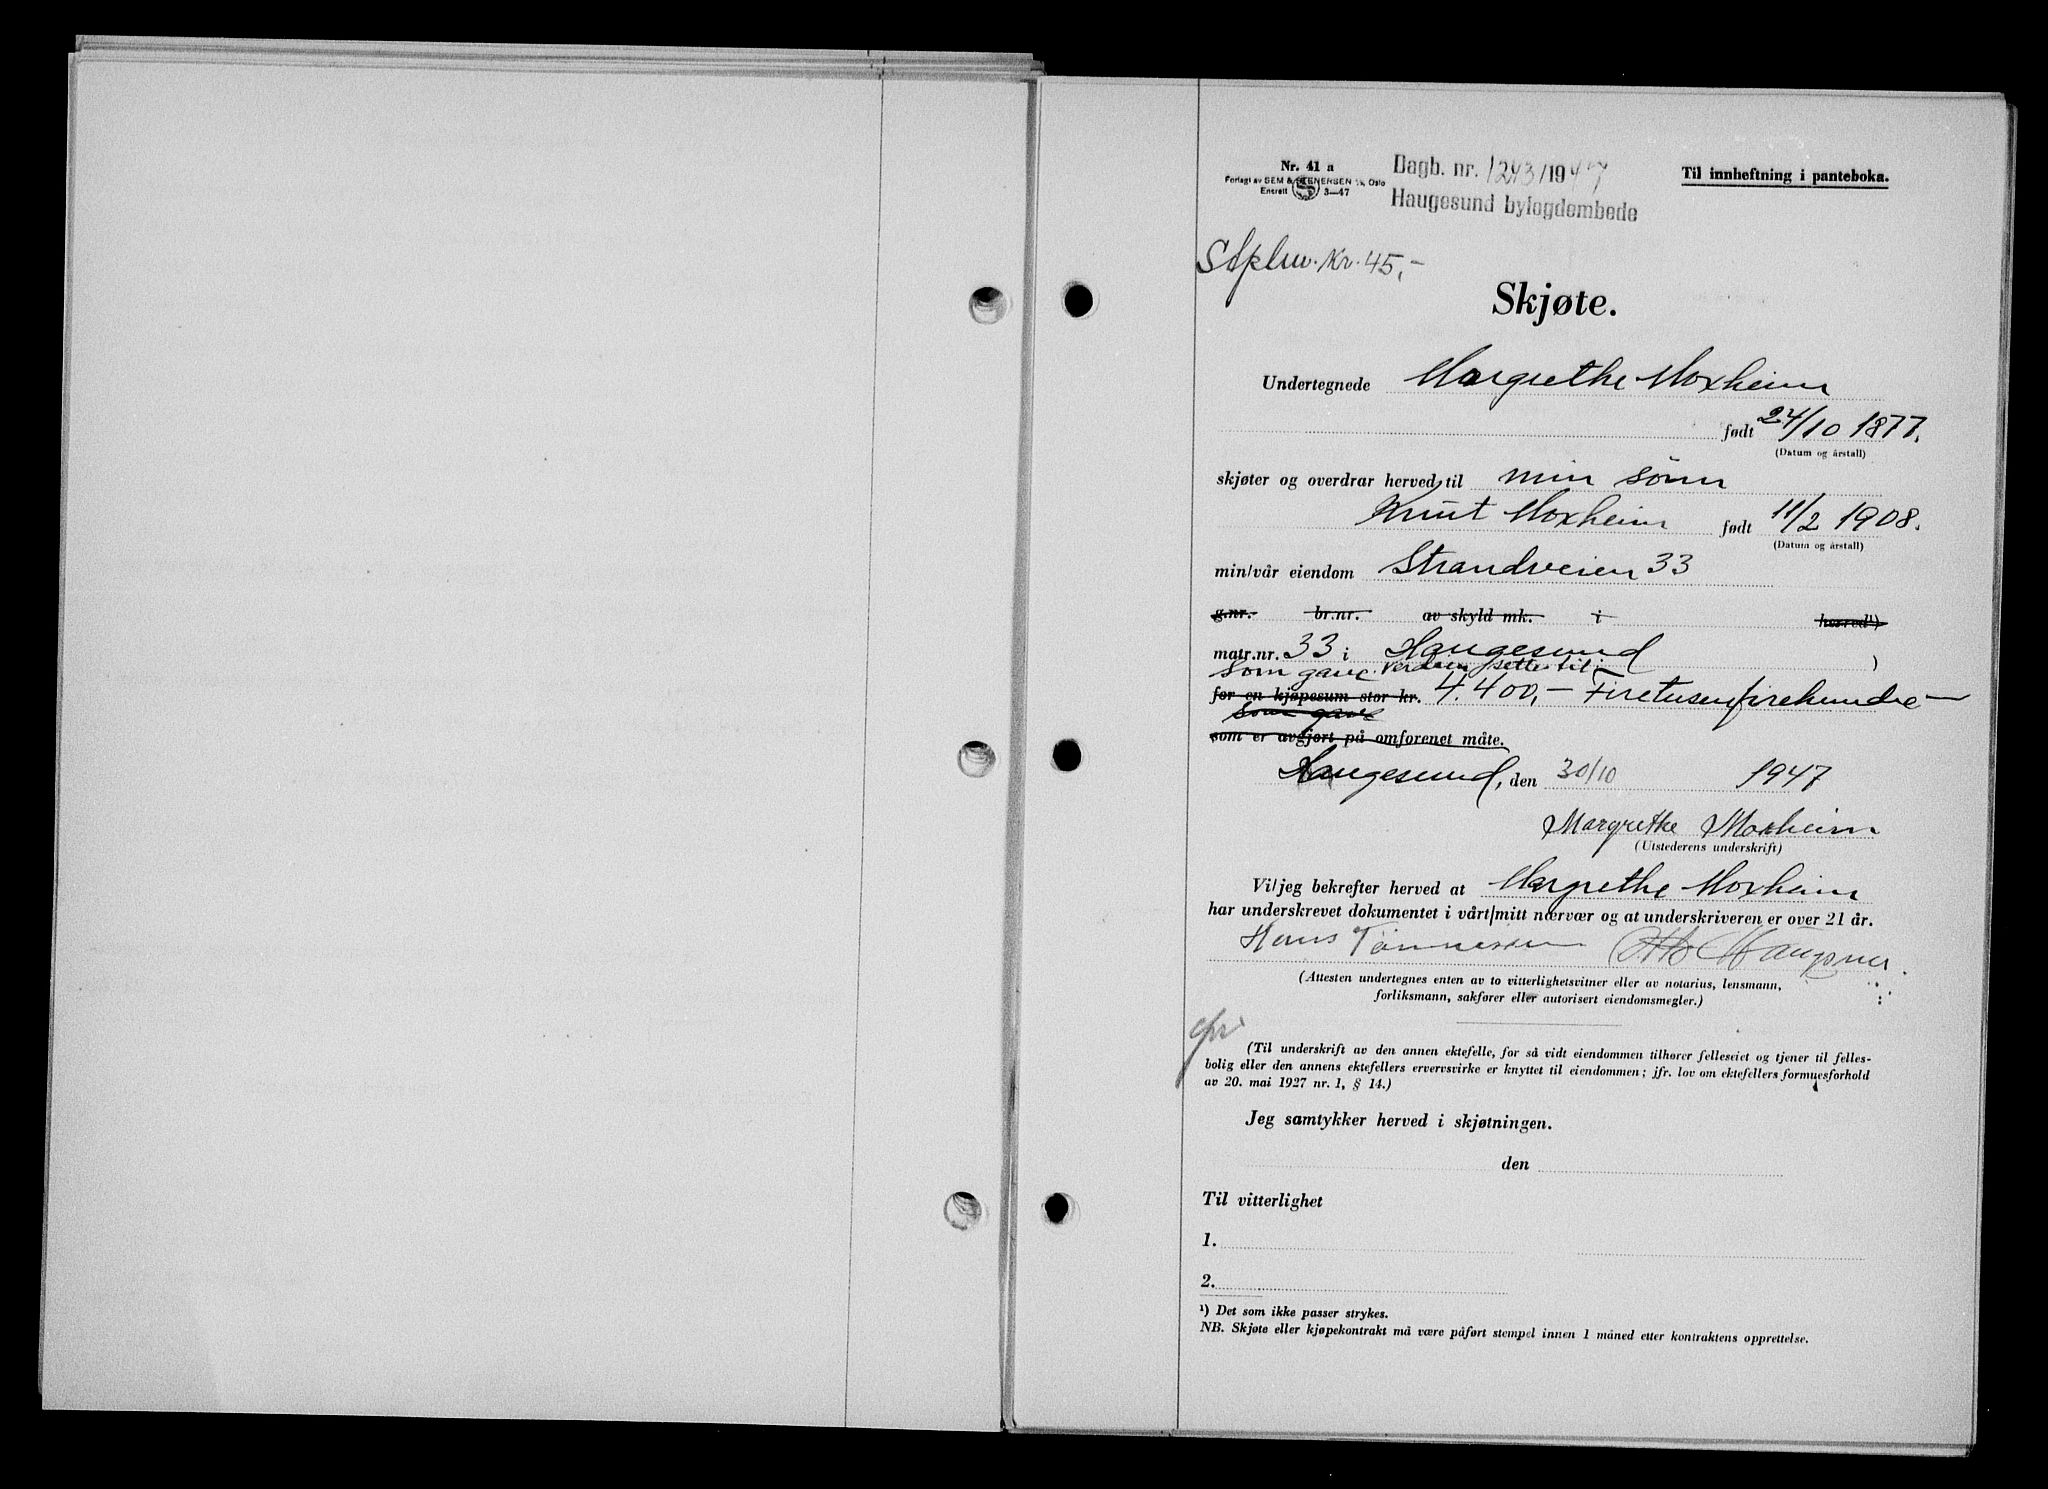 Nr. 41 a
Forlagt av SEM & STENERSEN A/S, Oslo
Enerett 3—47
Dagb. nr. 1243/1947
Haugesund byfogdembede
Til innheftning i panteboka.
Stplm. Kr. 45,-
Skjøte.
Undertegnede Margrethe Moxheim
født 24/10 1877.
(Datum og årstall)
skjøter og overdrar herved til min sønn
Knut Moxheim født 11/2 1908.
(Datum og årstall)
min/vår eiendom Strandveien 33
g.nr. br.nr. av skyld mk. i herred¹)
matr.nr. 33 i Haugesund )
Som gave verdien settes til
for en kjøpesum stor kr. 4.400,- Firetusenfirehundre —
Som gave
som er avgjort på omforenet måte.
Haugesund, den 30/10 1947
Margrethe Moxheim
(Utstederens underskrift)
Vi/jeg bekrefter herved at Margrethe Moxheim
har underskrevet dokumentet i vårt/mitt nærvær og at underskriveren er over 21 år.
Hans Tønnessen Otto
(Attesten undertegnes enten av to vitterlighetsvitner eller av notarius, lensmann,
forliksmann, sakfører eller autorisert eiendomsmegler.)
(Til underskrift av den annen ektefelle, for så vidt eiendommen tilhører felleseiet og tjener til felles-
bolig eller den annens ektefellers ervervsvirke er knyttet til eiendommen; jfr. lov om ektefellers formuesforhold
av 20. mai 1927 nr. 1, § 14.)
Jeg samtykker herved i skjøtningen.
den
Til vitterlighet
1.
2.
¹) Det som ikke passer strykes.
NB. Skjøte eller kjøpekontrakt må være påført stempel innen 1 måned etter kontraktens opprettelse.